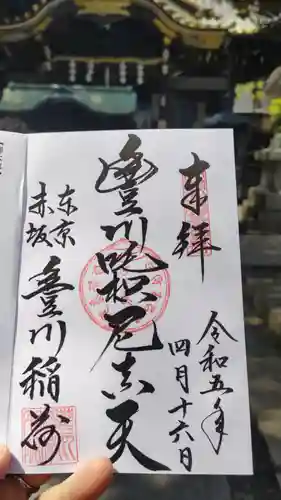 来拝
令和五年
四月十六日
豊川吒枳尼真天
東京
赤坂
豊川稲荷